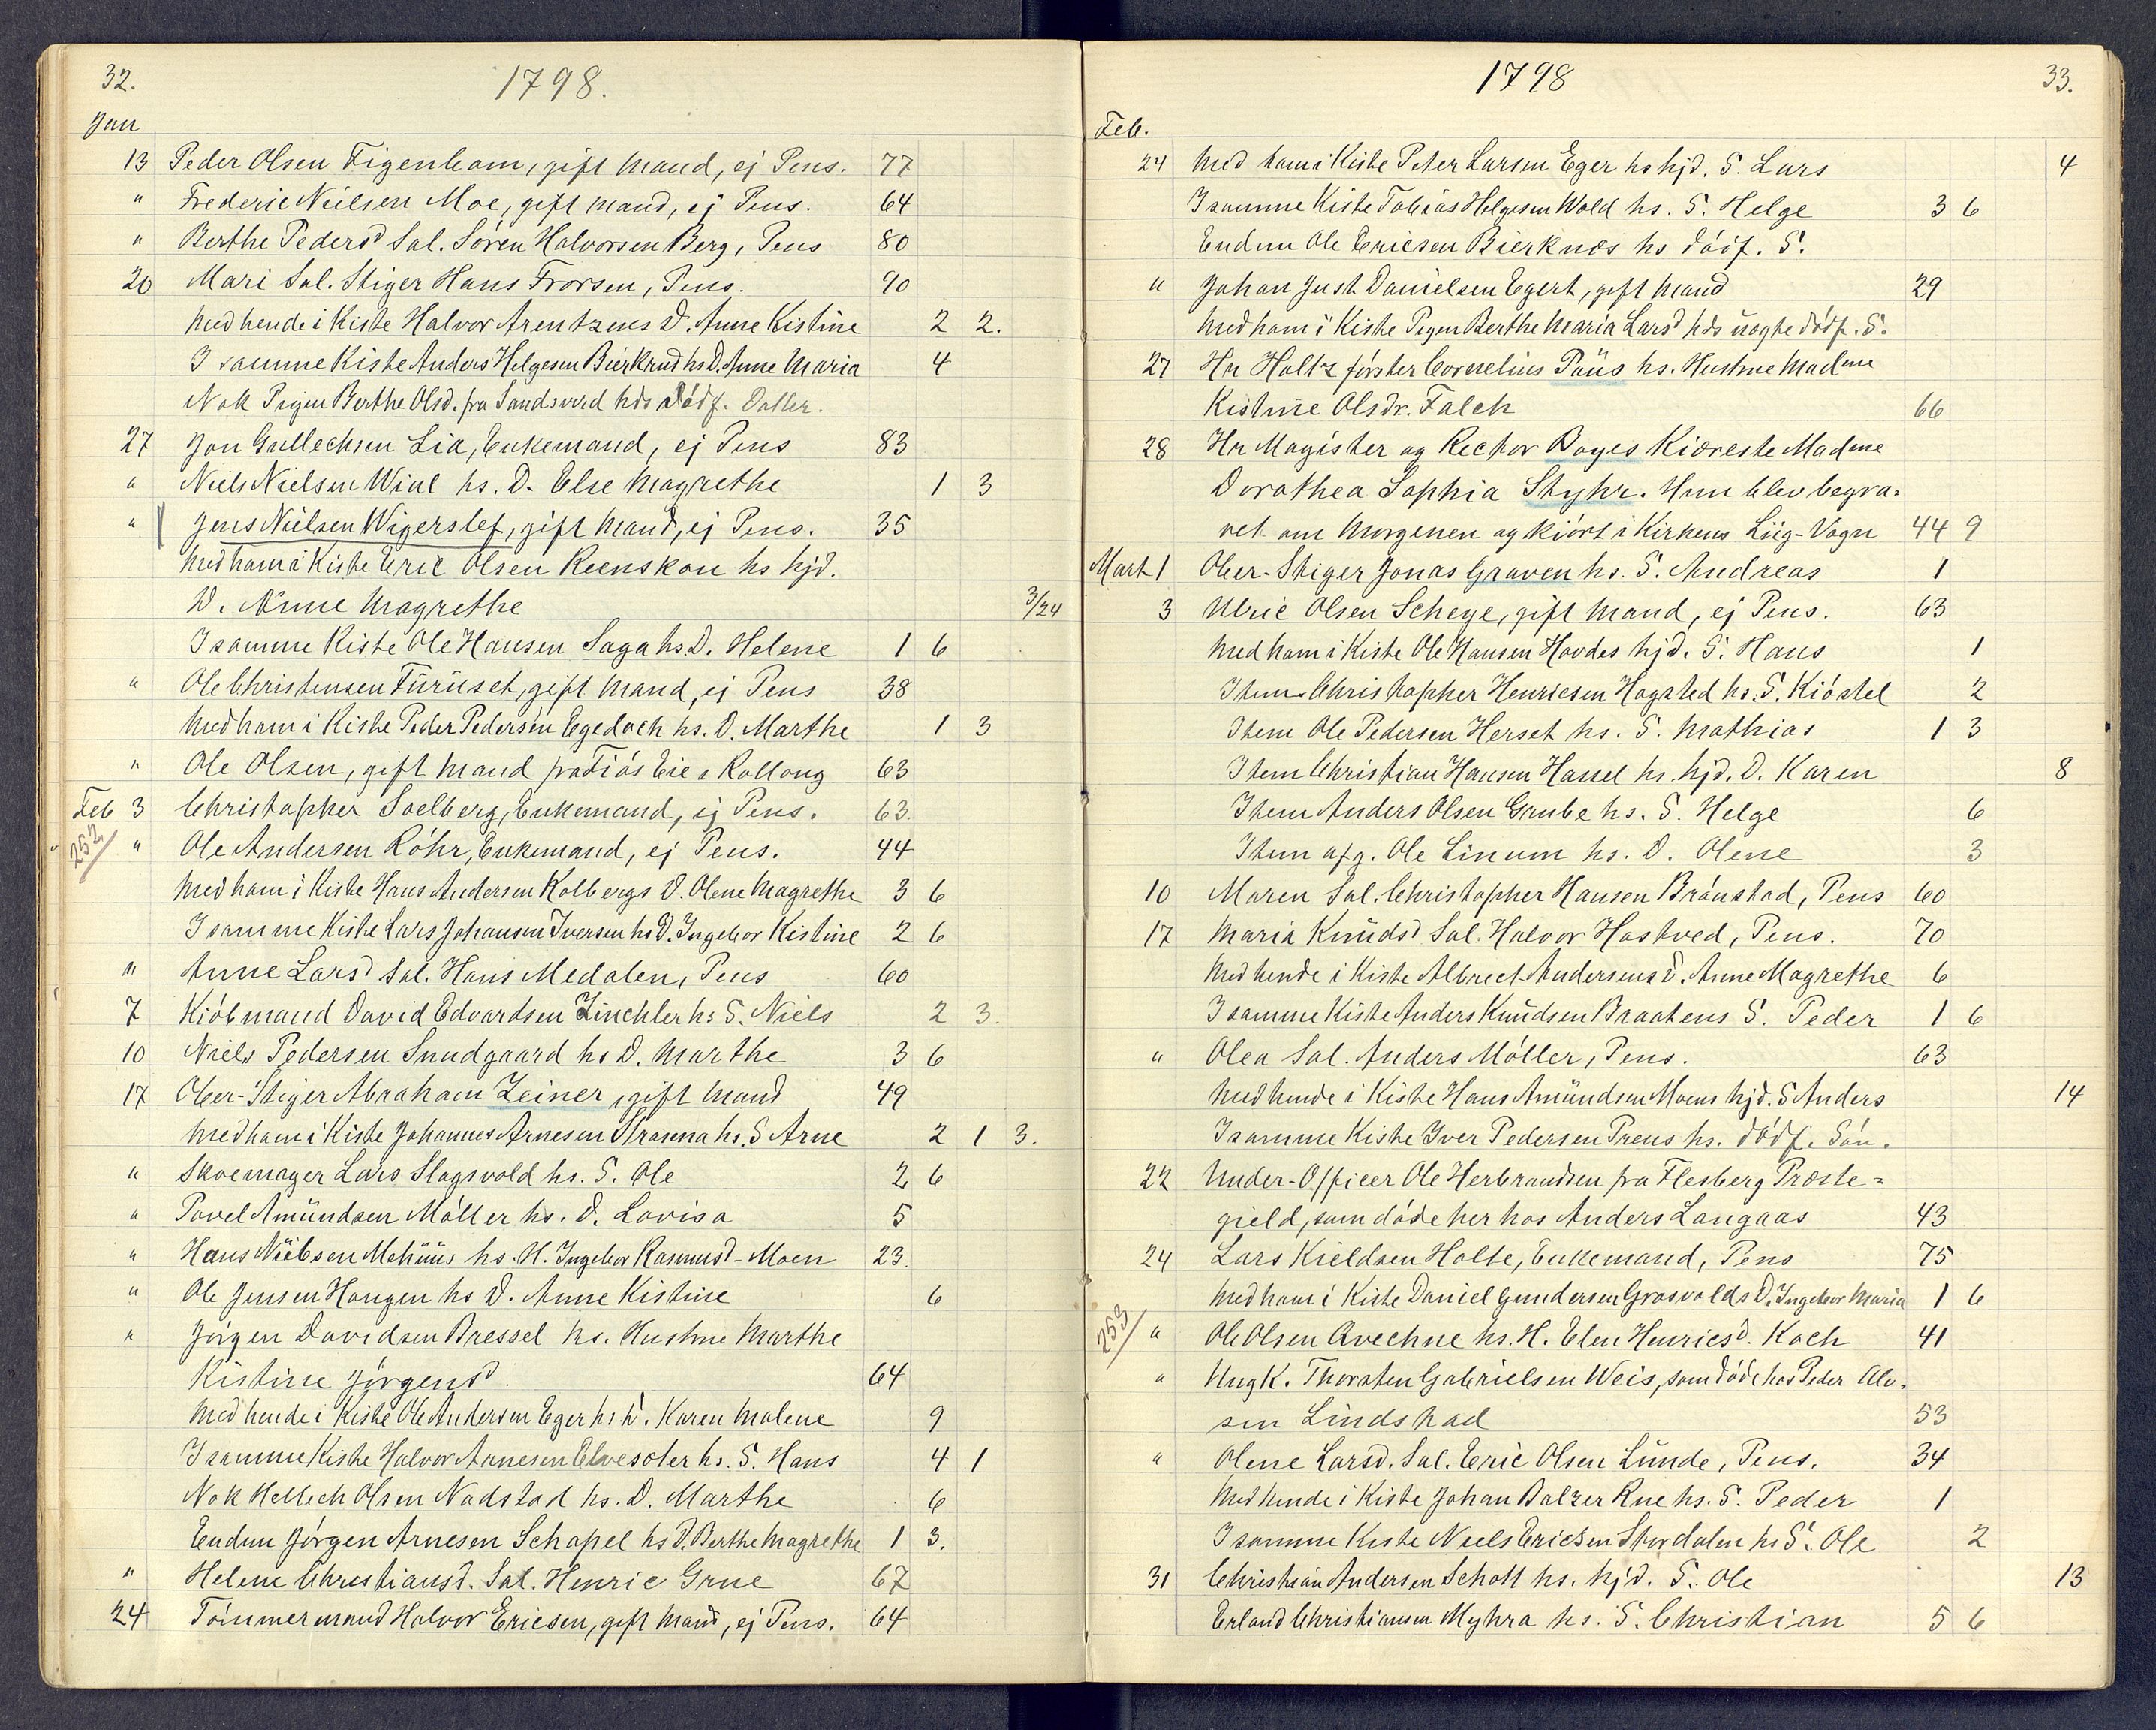 32.
1798.
Jan
13 Peder Olsen Figenbom, gift Mand, ej Pens. 77
" Frederic Nielsen Moe, gift Mand, ej Pens. 64
" Berthe Pedersd Sal. Sören Halvorsen Berg, Pens 80
20 Mari Sal. Stiger Hans Frorsen, Pens. 90
Med hende i Kiste Halvor Arentzens D. Anne Kistine 2 2.
I samme Kiste Anders Helgesen Bierkrud hs D. Anne Maria 4
Nok Pigen Berthe Olsd. fra Sandsværd hds dödf. Datter.
27 Jon Gullechsen Lia, Enkemand, ej Pens 83
" Niels Nielsen Wiul hs. D. Else Magrethe 1 3
" Jens Nielsen Wigerslef, gift Mand, ej Pens. 35
Med ham i Kiste Eric Olsen Reenskou hs hjd.
D. Anne Magrethe 3/24
I samme Kiste Ole Hansen Saga hs. D. Helene 1 6
" Ole Christensen Füruset, gift Mand, ej Pens 38
Med ham i Kiste Peder Pedersen Egedoch hs. D. Marthe 1 3
" Ole Olsen, gift Mand fra Fiös Eie i Rollong 63
Feb 3 Christopher Soelberg, Enkemand, ej Pens. 63.
252 " Ole Andersen Röhr, Enkemand, ej Pens. 44
Med ham i Kiste Hans Andersen Kolbergs D. Olene Magrethe 3 6
I samme Kiste Lars Johansen Iversen hs D. Ingebor Kistine 2 6
" Anne Larsd Sal. Hans Medalen, Pens 60
7 Kiöbmand David Edvardsen Zinchler hs S. Niels 2 3.
10 Niels Pedersen Sundgaard hs D. Marthe 3 6
17 Ober-Stiger Abraham Zeiner, gift Mand 49
Med ham i Kiste Johannes Arnesen Strasena hs. S Arne 2 1 3.
" Skoemager Lars Slagsvold hs. S. Ole 2 6
" Povel Amündsen Möller hs. D. Lovisa 5
" Hans Nielsen Mehuus hs. H. Ingebor Rasmusd-Moen 23.
" Ole Jensen Haugen hs D. Anne Kistine 6
" Jörgen Davidsen Bressel hs. Hustrue Marthe
Kistine Jörgensd. 64
Med hende i Kiste Ole Andersen Eger hs D. Karen Malene 9
I samme Kiste Halvor Aanesen Elvesæter hs. S. Hans 4 1
Nok Hellech Olsen Nadstad hs. D. Marthe 6
Endnu Jörgen Arnesen Schapel hs D. Berthe Magrethe 1 3.
" Helene Christiansd. Sal. Henric Grue 67
24 Tömmermand Halvor Ericsen, gift Mand, ej Pens. 64
1798
33.
Feb.
24 Med ham i Kiste Peter Larsen Eger hs hjd. S. Lars 4
I samme Kiste Tobias Helgesen Wold hs. S. Helge 3 6
Endnu Ole Ericsen Bierknes hs dödf. S.
" Johan Just Danielsen Egert, gift Mand 29
Med ham i Kiste Pigen Berthe Maria Larsd hds uægte dödf. S.
27 Hr Holtzförster Cornelius Paüs hs. Hustrue Madme
Kistine Olsdr. Falch 66
28 Hr Magister og Rector Boyes Kiæreste Madme
Dorothea Sophia Styhr. Hun blev begra-
vet om Morgenen og kiört i Kirkens Liig-Vogn 44 9
Mart 1 Ober-Stiger Jonas Graven hs. S. Andreas 1
3 Ulric Olsen Scheye, gift Mand, ej Pens. 63
Med ham i Kiste Ole Hansen Hovdes hjd. S. Hans 1
Item Christopher Henricsen Hagsted hs. S. Kiöstel 2
Item Ole Pedersen Herset hs. S. Mathias 1 3
Item Christian Hansen Hassel hs. hjd. D. Karen 8
Item Anders Olsen Grube hs. S. Helge 6
Item afg. Ole Linum hs. D. Olene 3
10 Maren Sal. Christopher Hansen Bränstad, Pens 60
17 Maria Knüdsd Sal. Halvor Hastved, Pens. 70
Med hende i Kiste Albrect Andersens D. Anne Magrethe 6
I samme Kiste Anders Knüdsen Braatens S. Peder 1 6
" Olea Sal. Anders Möller, Pens. 63
Med hende i Kiste Hans Amündsen Moens hjd. S Anders 14
I samme Kiste Iver Pedersen Preus hs. dödf. Sön.
22 Under-Officer Ole Herbrandsen fra Flesberg Præste-
gield, som döde her hos Anders Langaas 43
24 Lars Kieldsen Holte, Enkemand, Pens 75
Med ham i Kiste Daniel Gundersen Grosvolds D. Ingebor Maria 1 6
253 " Ole Olsen Qvechne hs. H. Elen Henricsd. Koch 41
" Ung K. Thorsten Gabrielsen Weis, som döde hos Peder Alv-
sen Lindstad 53
" Olene Larsd. Sal. Eric Olsen Lünde, Pens. 34
Med hende i Kiste Johan Balzer Rue hs. S. Peder 1
I samme Kiste Niels Ericsen Stordalen hs S. Ole 2
31 Christian Andersen Schott hs. hjd. S. Ole 13
Erland Christiansen Myhra hs. S. Christian 5 6